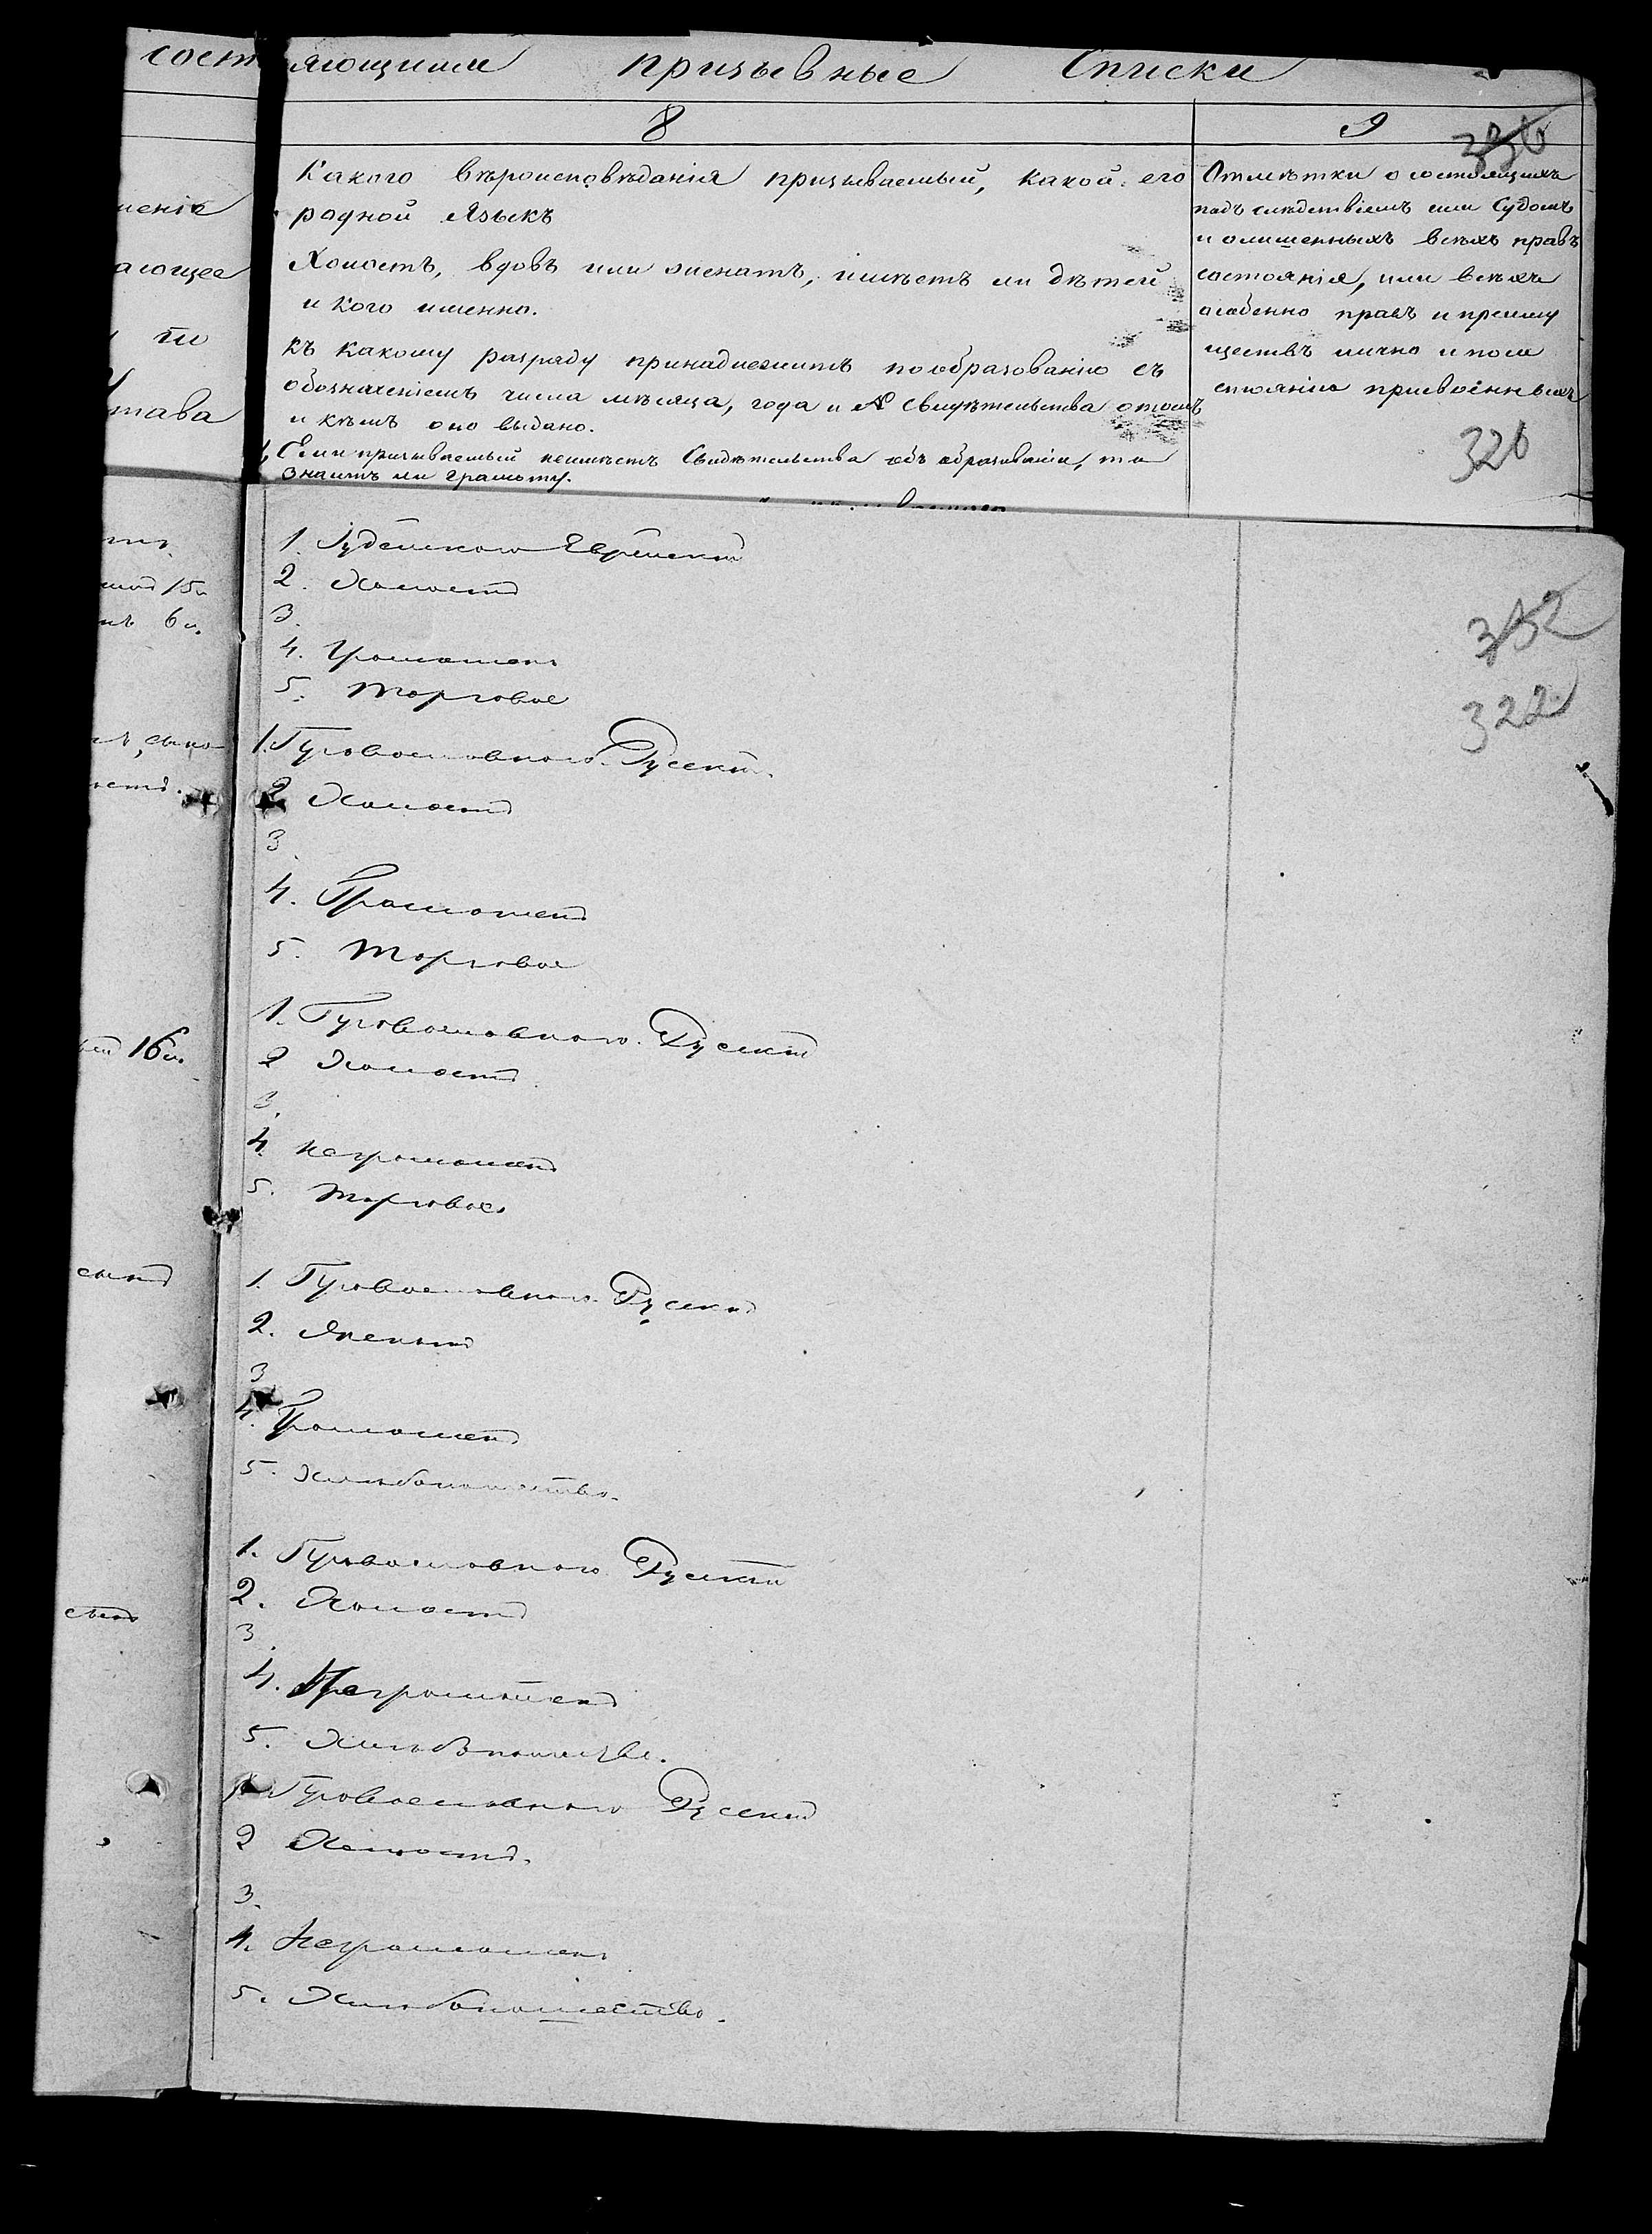 состав
ляющими призывные Списки
8
9
350
Какого вѣроисповѣданія призываемый, какой его
родной Языкъ
Холостъ, вдовъ или женатъ, имѣетъ ли дѣтей
и кого именно.
къ какому разряду принадлежитъ по образованію съ
обозначеніемъ числа мѣсяца, года и № Свидѣтельства о томъ
и кѣмъ оно выдано.
Если призываемый неимѣетъ Свидѣтельства объ образованіи, то
Знаитъ ли грамоту.
Отмѣтки о состоящихъ
подъ слѣдствіемъ или Судомъ
и о лишенныхъ всѣхъ правъ
состоянія, или всѣхъ
особенно правъ и преиму
ществъ лично и по со
стоянію присвоенныхъ
320
1. Іудейскаго Еврейскій
2. Холостъ
3.
4. Грамотенъ
5. Торговое
352
322
1. Православнаго. Русскій.
2 Холостъ
3.
4. Грамотенъ
5. Торговое
1. Православнаго. Русскій
2 Холостъ
3.
4. Неграмотенъ
5. Торговое.
1. Православнаго. Русскій
2. Женатъ
3
4. Грамотенъ
5. Хлѣбопашество.
1. Православнаго Русскій
2. Холостъ
3.
4. Неграмотенъ
5. Хлѣбопашество.
1. Православнаго Русскій
2 Холостъ.
3.
4. Неграмотенъ
5. Хлѣбопашество.
ающее
по
става
15
6
16
сынъ
сынъ